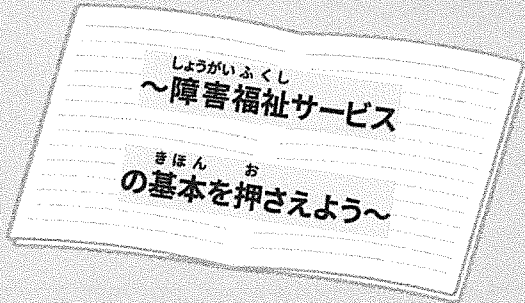 しょうがい ふくし
～障害福祉サービス
きほん お
の基本を押さえよう～